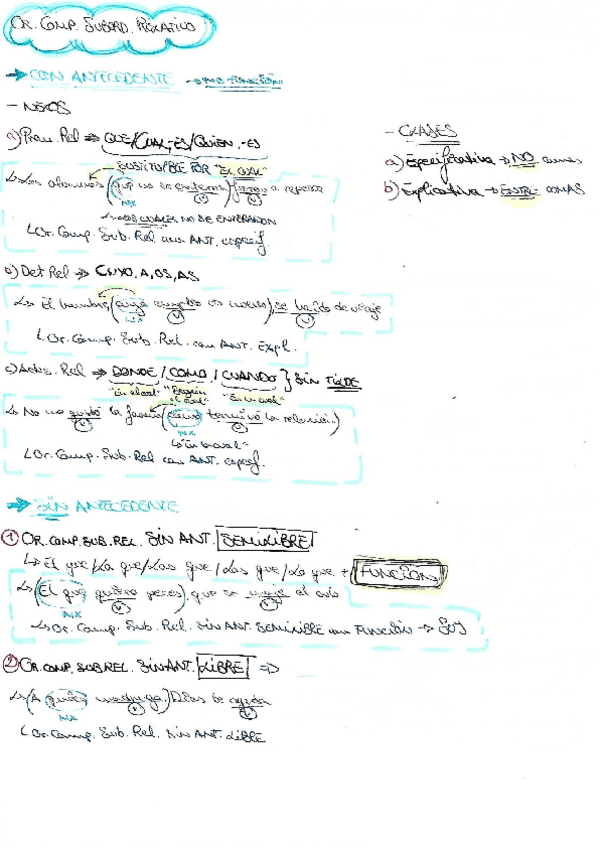 OR. COMP. SUBORD. RELATIVO
→ CON ANTECEDENTE → NO FUNCIÓN
- NEXOS
a) Pron Rel ⇒ QUE/CUAL,-ES/QUIEN,-ES
SUSTITUIBLE POR "EL CUAL"
↳ Los alumnos (que no se enteran) a repasar
NX V V
↳ LOS CUALES NO SE ENTERARON
↳ Or. Comp. Sub. Rel con ANT. especif.
b) Det Rel ⇒ CUYO, A, OS, AS
↳ El hombre, (cuyo es), se ha ido de viaje
NX V V
↳ Or. Comp. Sub. Rel. con ANT. Expl.
c) Adv. Rel ⇒ DONDE / COMO / CUANDO } SIN TILDE
"En el cual" "Según el cual" "En el cual"
↳ No me gustó la forma (como terminó la relación)
V NX V
↳ "En la cual"
↳ Or. Comp. Sub. Rel con ANT. especif.
- CLASES
a) Especificativa → NO comas
b) Explicativa → ENTRE COMAS
→ SIN ANTECEDENTE
① OR. COMP. SUB. REL. SIN ANT. SEMILIBRE
↳ El que/La que/Los que/Las que/Lo que + FUNCIÓN
↳ (El que quiera peces), que se moje el culo
NX V V
↳ Or. Comp. Sub. Rel. SIN ANT. SEMILIBRE con FUNCIÓN → SUJ
② OR. COMP. SUB REL. SIN ANT. LIBRE ⇒
↳ (A quien madruga,) Dios le ayuda
NX V V
↳ Or. Comp. Sub. Rel. SIN ANT. LIBRE